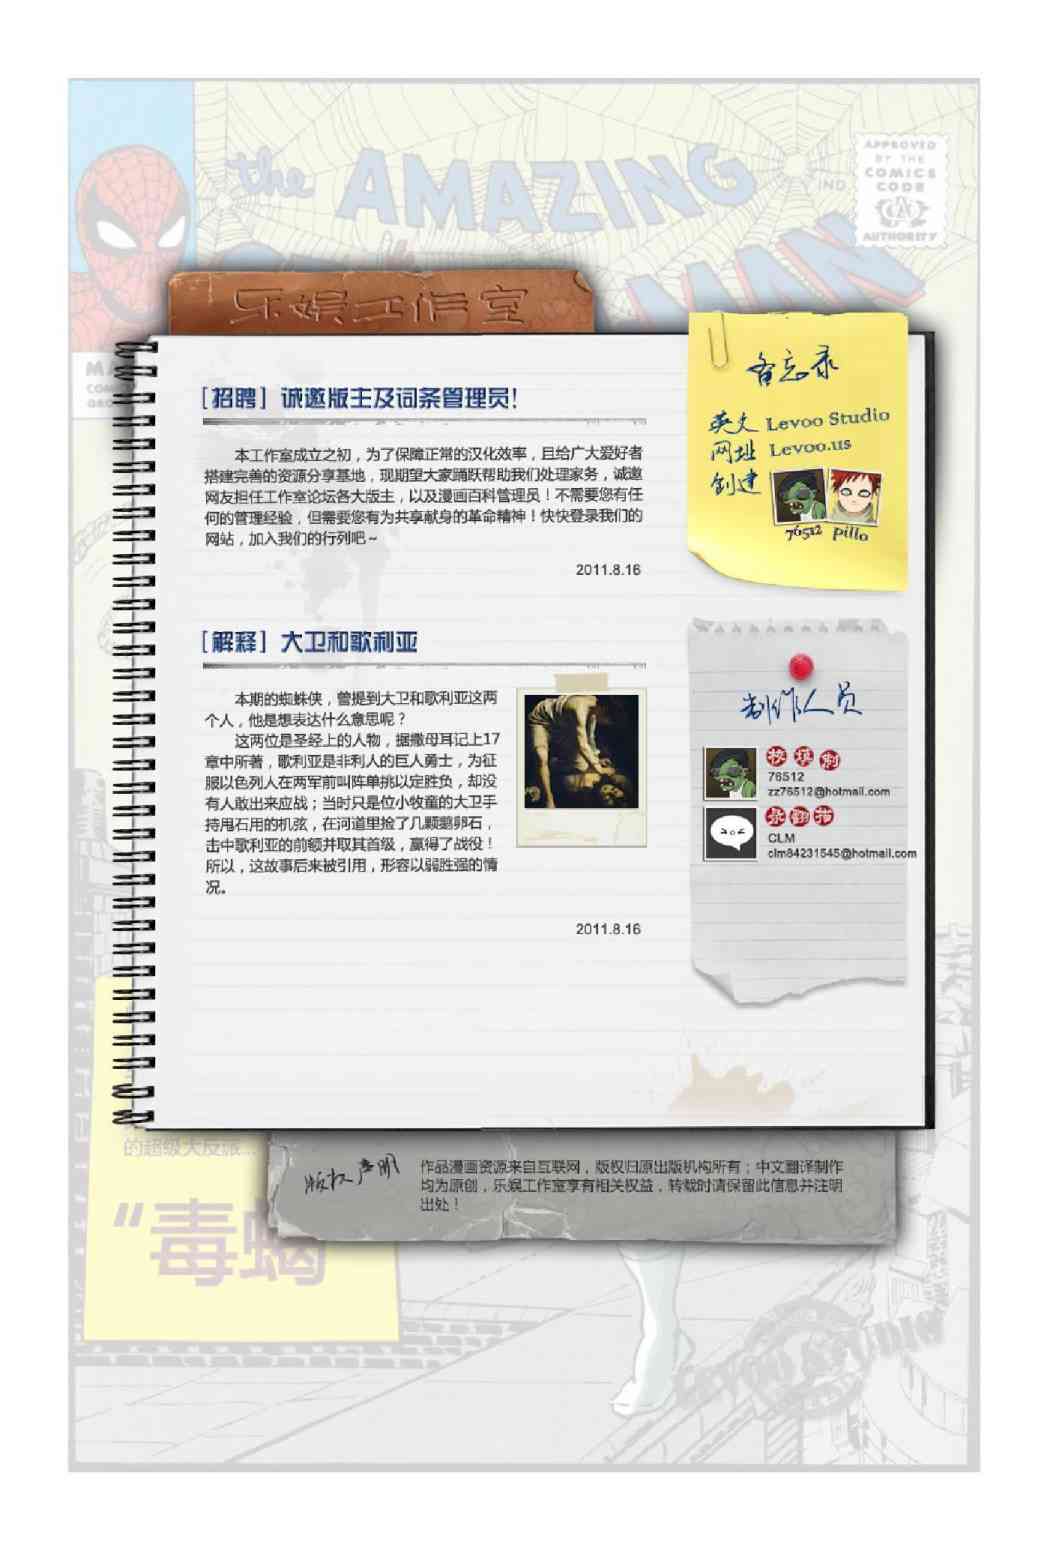 the AMAZING
MAN
IND.
APPROVED
BY THE
COMICS
CODE
CA
AUTHORITY
乐娱工作室
[招聘] 诚邀版主及词条管理员！
本工作室成立之初，为了保障正常的汉化效率，且给广大爱好者
搭建完善的资源分享基地，现期望大家踊跃帮助我们处理家务，诚邀
网友担任工作室论坛各大版主，以及漫画百科管理员！不需要您有任
何的管理经验，但需要您有为共享献身的革命精神！快快登录我们的
网站，加入我们的行列吧～
2011.8.16
[解释] 大卫和歌利亚
本期的蜘蛛侠，曾提到大卫和歌利亚这两
个人，他是想表达什么意思呢？
这两位是圣经上的人物，据撒母耳记上17
章中所著，歌利亚是非利人的巨人勇士，为征
服以色列人在两军前叫阵单挑以定胜负，却没
有人敢出来应战；当时只是位小牧童的大卫手
持甩石用的机弦，在河道里捡了几颗鹅卵石，
击中歌利亚的前额并取其首级，赢得了战役！
所以，这故事后来被引用，形容以弱胜强的情
况。
2011.8.16
备忘录
英文 Levoo Studio
网址 Levoo.us
创建
76512 pillo
制作人员
校 填 制
76512
zz76512@hotmail.com
录 翻 扫
CLM
clm84231545@hotmail.com
的超级大反派...
“毒蝎
版权声明
作品漫画资源来自互联网，版权归原出版机构所有；中文翻译制作
均为原创，乐娱工作室享有相关权益，转载时请保留此信息并注明
出处！
LEVOO STUDIO